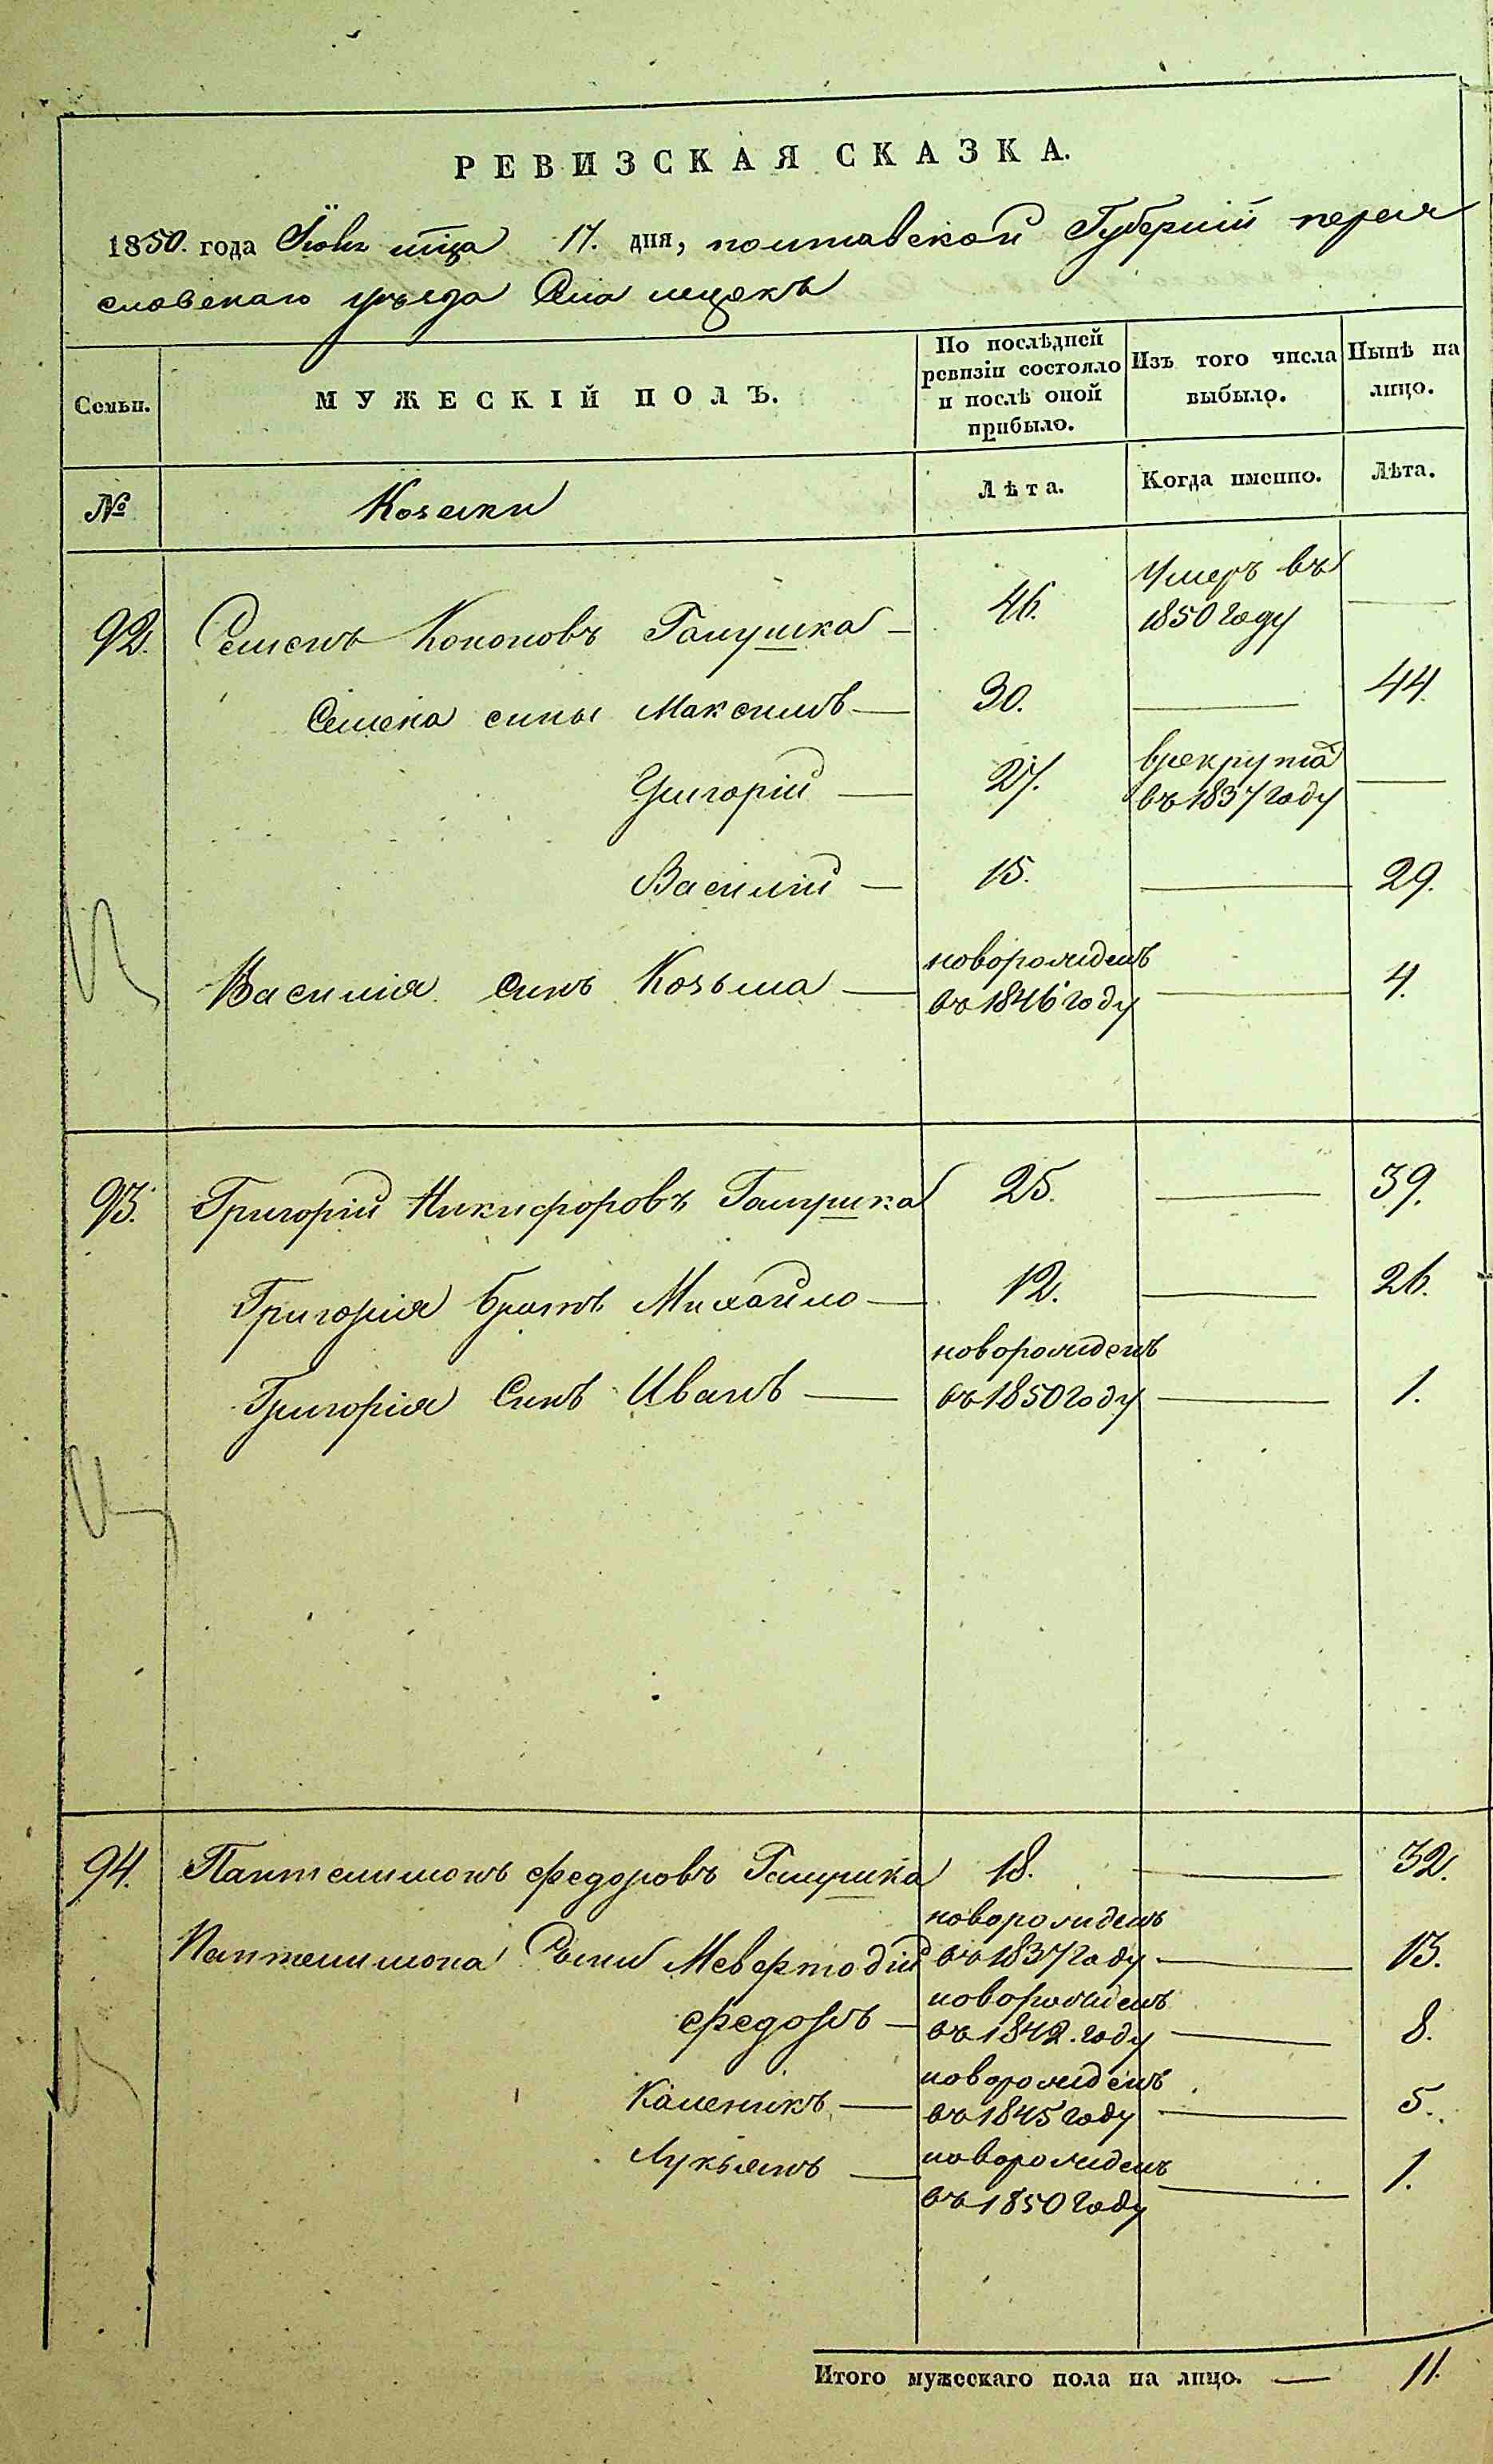 РЕВИЗСКАЯ СКАЗКА.
1850. года Іюнь мца 17. дня, полтавской Губерніи перея
словскаго уѣзда Села лецокъ
Семьи.
МУЖЕСКІЙ ПОЛЪ.
По послѣдней ревизіи состояло и послѣ оной прибыло.
Изъ того числа выбыло.
Нынѣ на лицо.
№
Козаки
Лѣта.
Когда именно.
Лѣта.
92. Семенъ Кононовъ Галушка — 46. Умеръ въ 1850 году —
Семена сины Максимъ — 30. — 44.
Григорій — 27. врекрута въ 1837 году —
Василій — 15. — 29.
Василія Синъ Козьма — новорожденъ въ 1846 году — 4.
93. Григорій Никифоровъ Галушка 25. — 39.
Григорія братъ Михайло — 12. — 26.
Григорія Синъ Иванъ — новорожденъ въ 1850 году — 1.
94. Пантелимонъ Федоровъ Галушка 18. — 32.
Пантелимона Сыни Меѳодій новорожденъ въ 1837 году — 13.
Федоръ — новорожденъ въ 1842. году — 8.
Каленикъ — новорожденъ въ 1845 году — 5.
Лукьянъ — новорожденъ въ 1850 году — 1.
Итого мужескаго пола на лицо. — 11.